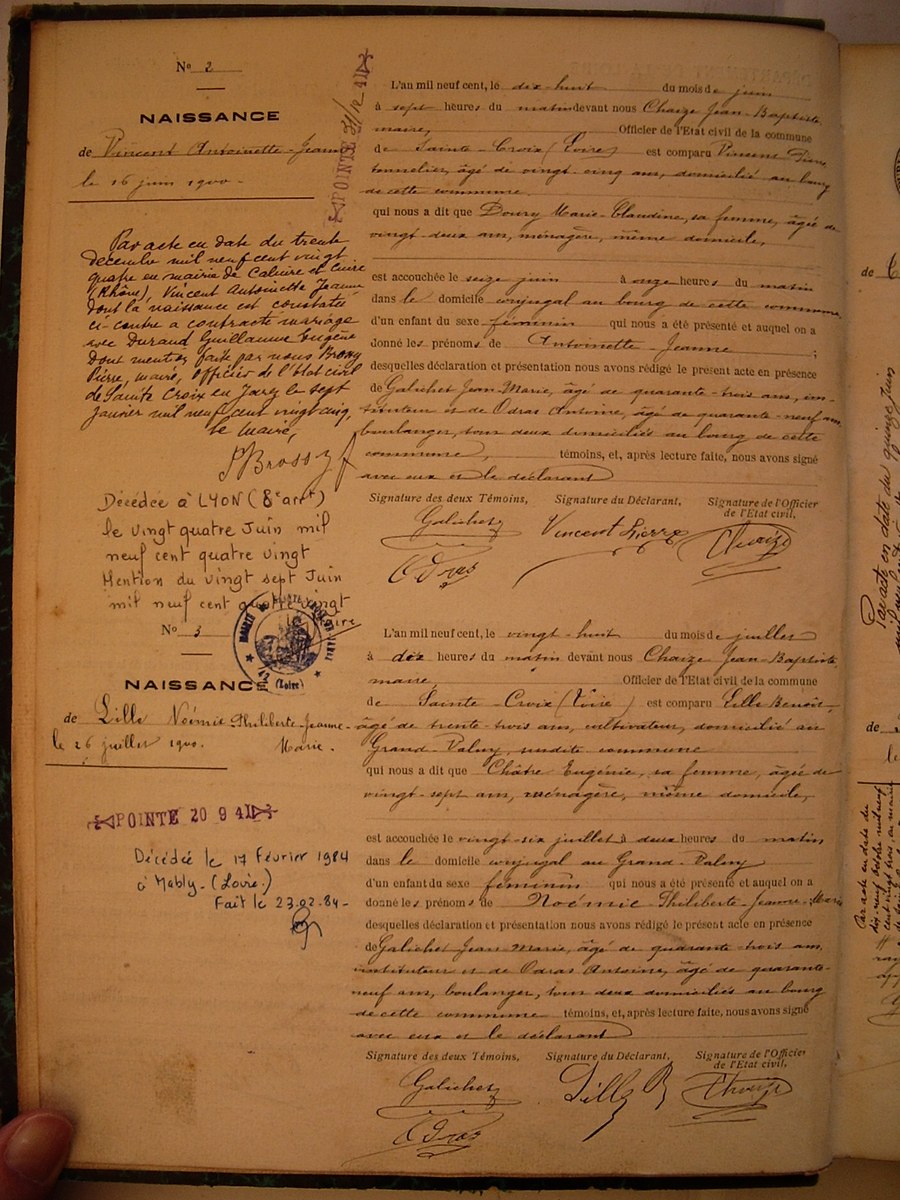 N° 2
NAISSANCE
de Vincent Antoinette-Jeanne
le 16 juin 1900.
POINTE 31/12 41
Par acte en date du trente
décembre mil neuf cent vingt
quatre en mairie de Caluire et Cuire
(Rhône), Vincent Antoinette Jeanne
dont la naissance est constatée
ci-contre a contracté mariage
avec Durand Guillaume Eugène
Dont mention faite par nous Brossy
Pierre, maire, officier de l'état civil
de Sainte Croix en Jarez le sept
janvier mil neuf cent vingt cinq,
le maire,
PBrossy
Décédée à LYON (8e arrt)
le vingt quatre Juin mil
neuf cent quatre vingt
Mention du vingt sept Juin
mil neuf cent quatre vingt
L'an mil neuf cent, le dix-huit du mois de juin
à sept heures du matin devant nous Chaize Jean-Baptiste,
maire, Officier de l'Etat civil de la commune
de Sainte-Croix (Loire) est comparu Vincent Pierre
tonnelier, âgé de vingt-cinq ans, domicilié au bourg
de cette commune
qui nous a dit que Doury Marie-Claudine, sa femme, âgée de
vingt-deux ans, ménagère, même domicile,
est accouchée le seize juin à onze heures du matin
dans le domicile conjugal au bourg de cette commune
d'un enfant du sexe féminin qui nous a été présenté et auquel on a
donné les prénoms de Antoinette-Jeanne ;
desquelles déclaration et présentation nous avons rédigé le présent acte en présence
de Galichet Jean-Marie, âgé de quarante-trois ans, ins-
tituteur et de Odras Antoine, âgé de quarante-neuf ans,
boulanger, tous deux domiciliés au bourg de cette
commune, témoins, et, après lecture faite, nous avons signé
avec eux et le déclarant
Signature des deux Témoins, Signature du Déclarant, Signature de l'Officier
de l'Etat civil,
Galichet Vincent Pierre Chaize
Odras
N° 3
NAISSANCE
de Lille Noémie-Philiberte-Jeanne-
Marie.
le 26 juillet 1900.
POINTE 20 9 41
Décédée le 17 Février 1984
à Mably-(Loire.)
Fait le 23.02.84-
L'an mil neuf cent, le vingt-huit du mois de juillet
à dix heures du matin devant nous Chaize Jean-Baptiste,
maire, Officier de l'Etat civil de la commune
de Sainte-Croix (Loire) est comparu Lille Benoît,
âgé de trente-trois ans, cultivateur, domicilié au
Grand-Palny, susdite commune
qui nous a dit que Châtre Eugénie, sa femme, âgée de
vingt-sept ans, ménagère, même domicile,
est accouchée le vingt-six juillet à deux heures du matin
dans le domicile conjugal au Grand-Palny
d'un enfant du sexe féminin qui nous a été présenté et auquel on a
donné les prénoms de Noémie-Philiberte-Jeanne-Marie
desquelles déclaration et présentation nous avons rédigé le présent acte en présence
de Galichet Jean-Marie, âgé de quarante-trois ans,
instituteur et de Odras Antoine, âgé de quarante-
neuf ans, boulanger, tous deux domiciliés au bourg
de cette commune témoins, et, après lecture faite, nous avons signé
avec eux et le déclarant
Signature des deux Témoins, Signature du Déclarant, Signature de l'Officier
de l'Etat civil,
Galichet Lille B Chaize
Odras
de
Par acte en date du quinze juin
de
le
Par acte en date du